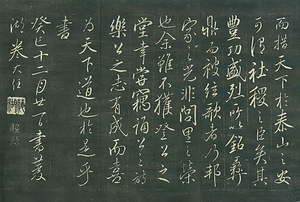 而措天下於泰山之安
可謂社稷之臣矣其
豐功盛烈所以銘彝
鼎而被絃歌者乃邦
家之光非閭里之榮
也余雖不獲登公之
堂幸嘗竊誦公之詩
樂公之志有成而喜
為天下道也於是乎
書
癸巳十二月廿